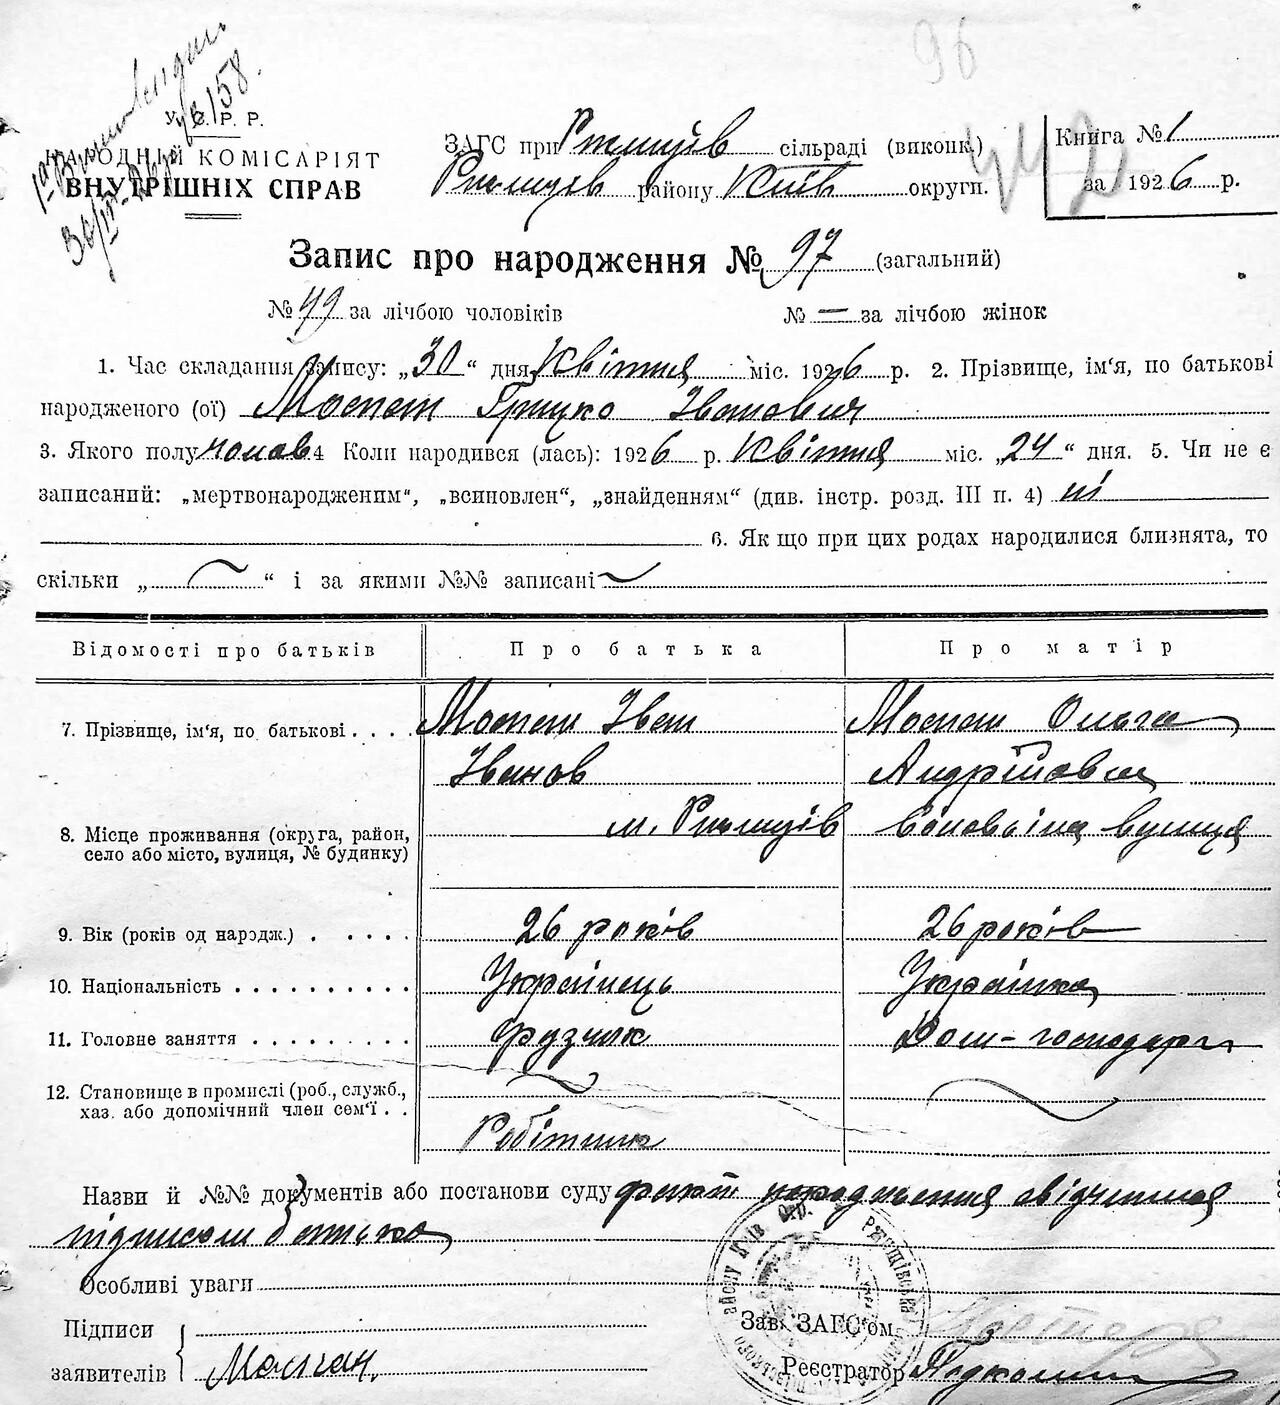 96
У. С. Р. Р.
НАРОДНІЙ КОМІСАРІЯТ
ВНУТРІШНІХ СПРАВ
ЗАГС при Ржищів сільраді (виконк.)
Ржищів району Київ округи.
Книга № 1
за 1926 р.
Запис про народження № 97 (загальний)
№ 49 за лічбою чоловіків № — за лічбою жінок
1. Час складання запису: „30“ дня Квітня міс. 1926 р. 2. Прізвище, ім‘я, по батькові
народженого (ої) Грицько Іванович
3. Якого полу чолов 4 Коли народився (лась): 1926 р. Квітня міс. „24“ дня. 5. Чи не є
записаний: „мертвонародженим“, „всиновлен“, „знайденням“ (див. інстр. розд. III п. 4) ні
6. Як що при цих родах народилися близнята, то
скільки „ “ і за якими №№ записані
Відомості про батьків Про батька Про матір
7. Прізвище, ім‘я, по батькові . . . . Іван Ольга
Іванов Андріївна
8. Місце проживання (округа, район, м. Ржищів вулиця
село або місто, вулиця, № будинку)
9. Вік (років од народж.) . . . . . 26 років 26 років
10. Національність . . . . . . . . . . Українець Українка
11. Головне заняття . . . . . . . . . Грузчик Дом-господарк
12. Становище в промислі (роб., служб.,
хаз. або допомічний член сем‘ї . .
Робітник
Назви й №№ документів або постанови суду факт народження свідчиться
підписом батька
Особливі уваги
Підписи
Зав. ЗАГС‘ом
заявителів
Реєстратор